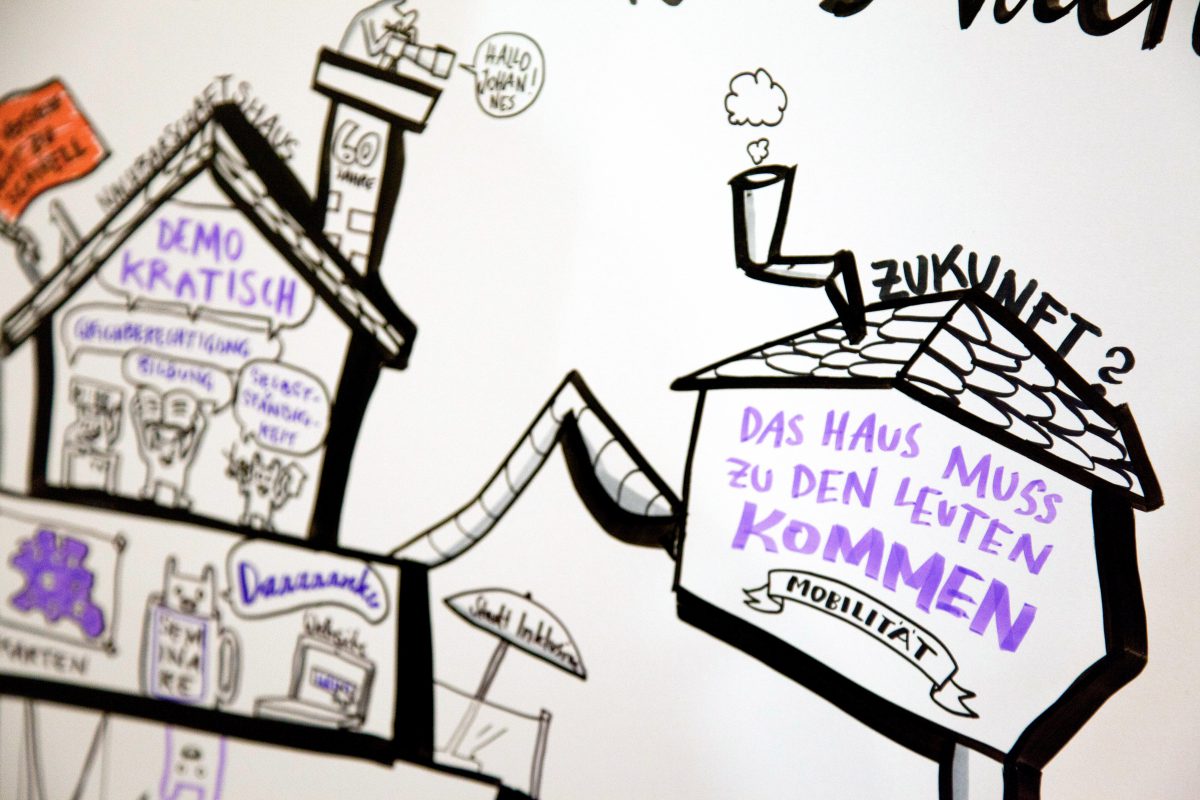 HALLO
JOHAN!
NES
60
JAHRE
NACHBARSCHAFTSHAUS
DEMO
KRATISCH
GLEICHBERECHTIGUNG
BILDUNG
SELBST-
STÄNDIG-
KEIT
Daaaaanke
SEM
INA
RE
Website
KARTEN
Stadt Inklusive
ZUKUNFT?
DAS HAUS MUSS
ZU DEN LEUTEN
KOMMEN
MOBILITÄT